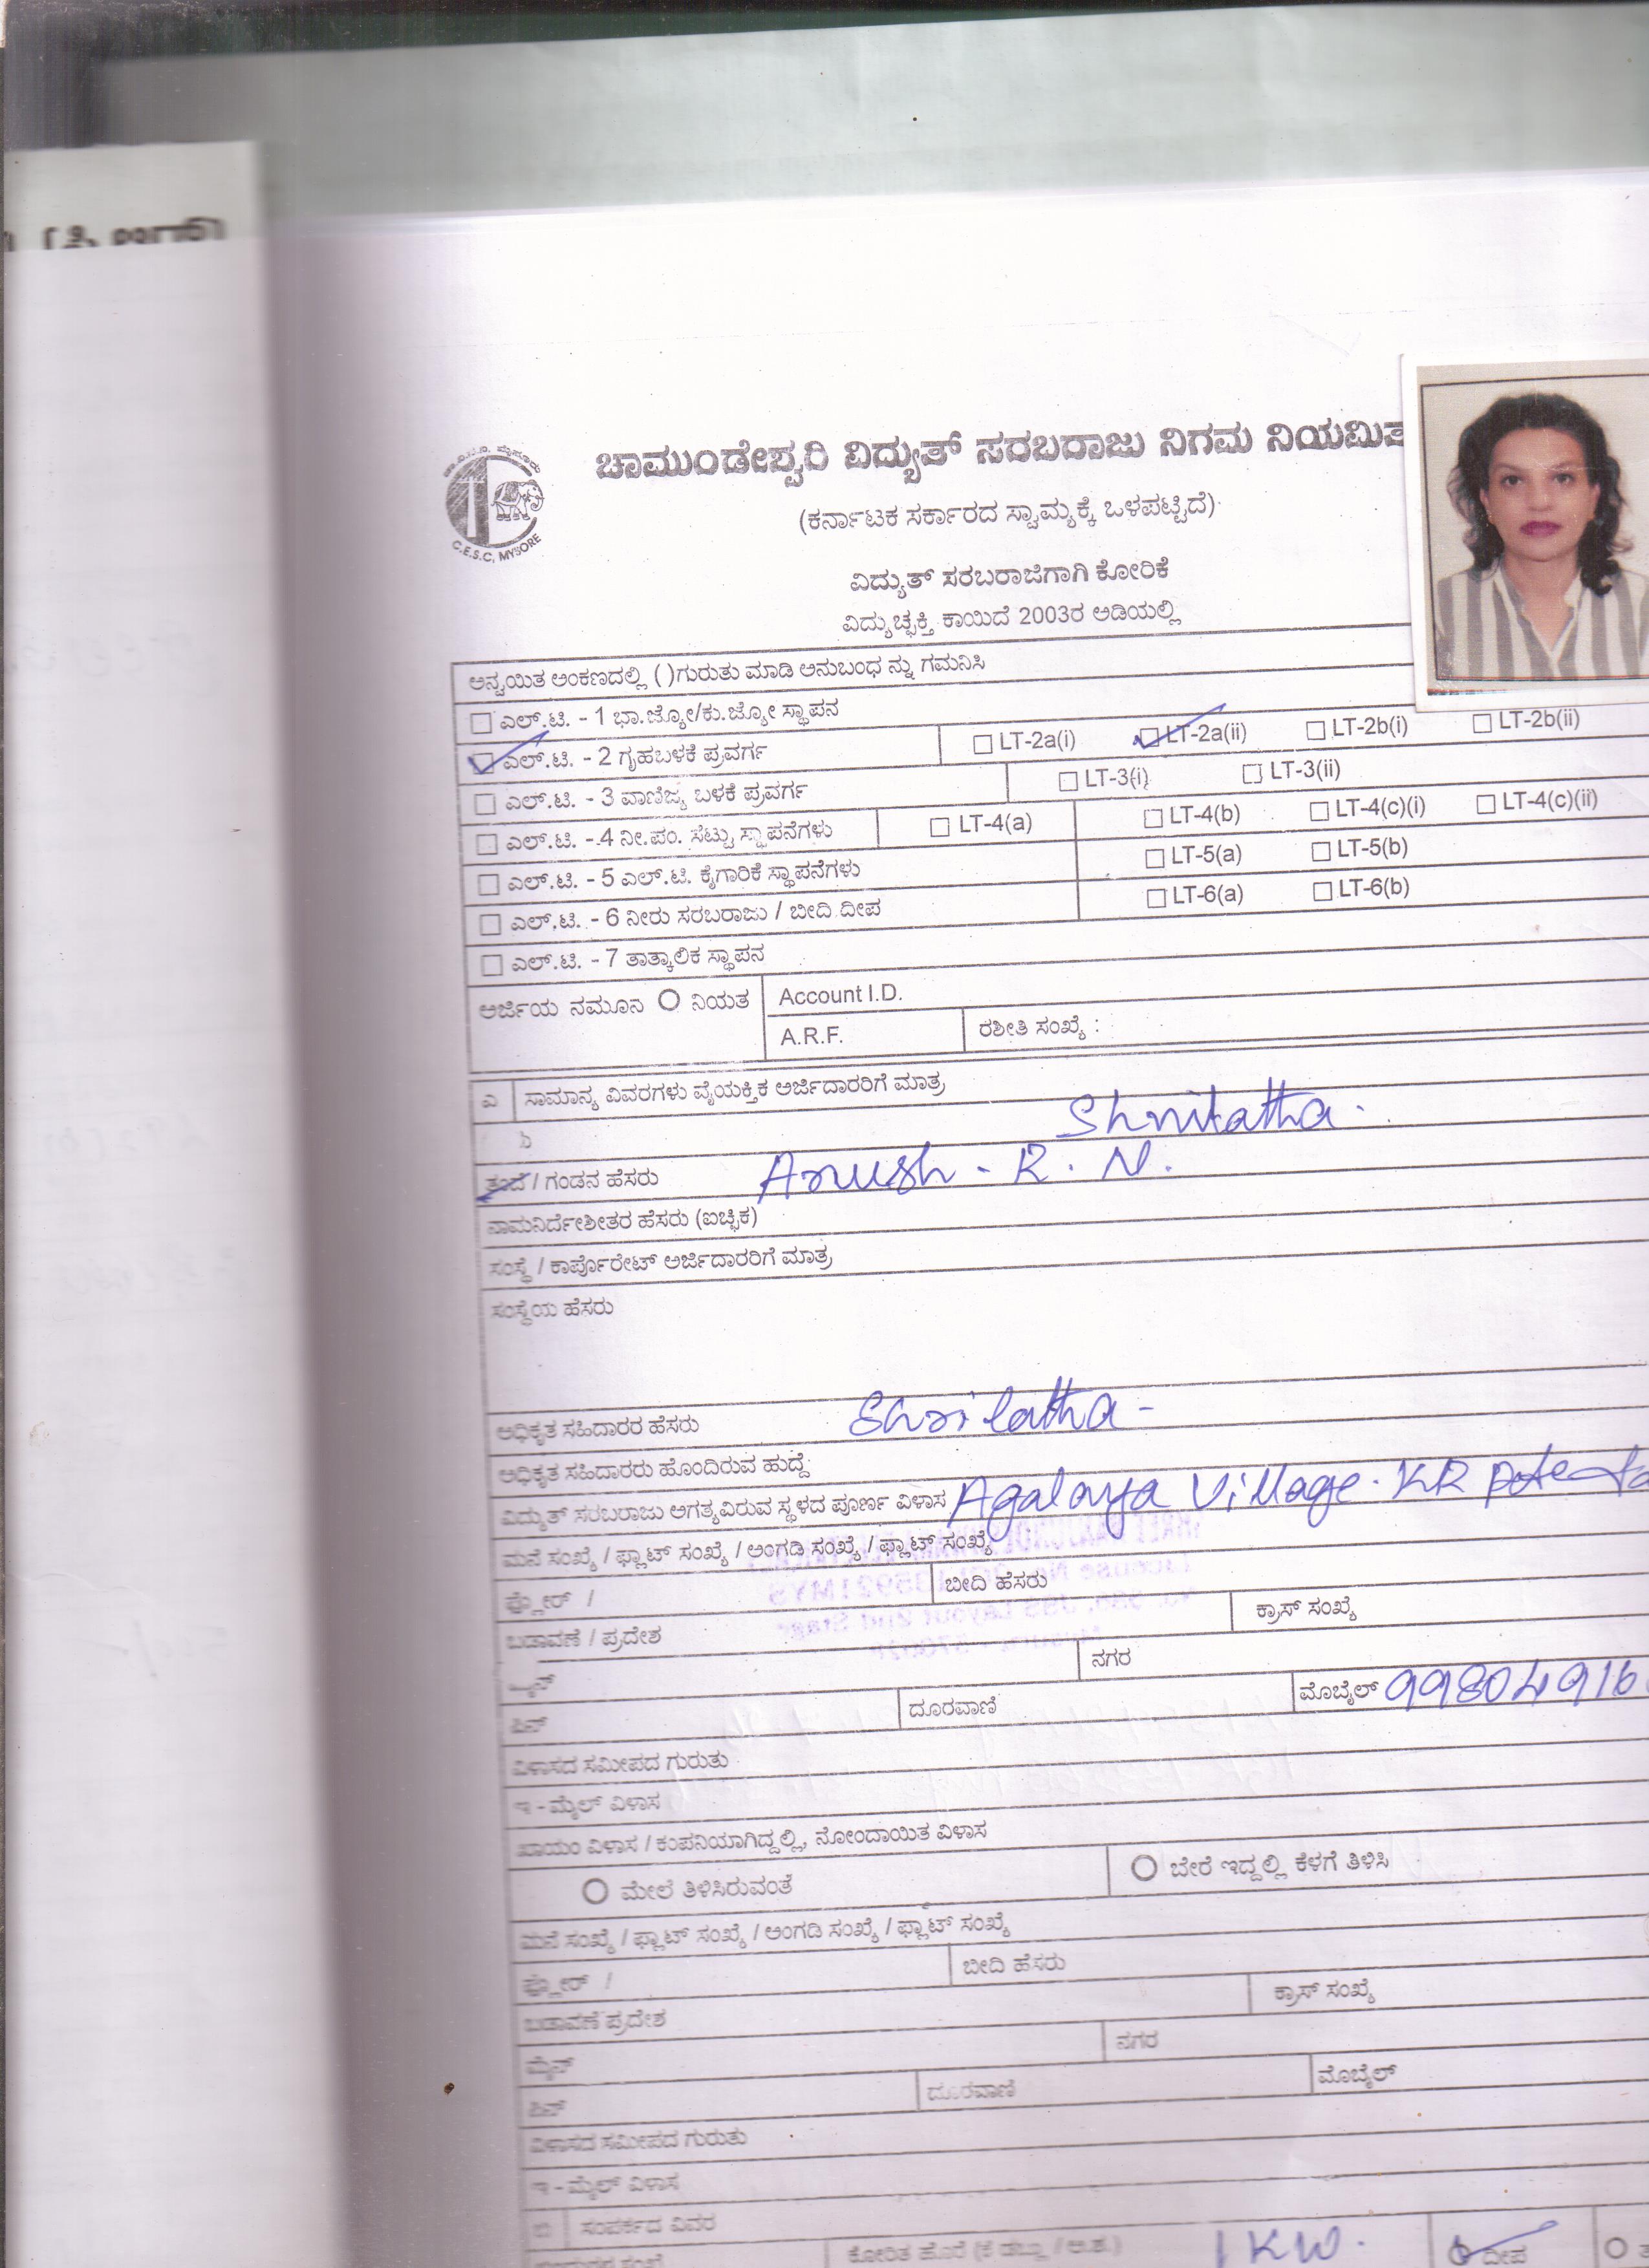 C.E.S.C, MYSORE
ಚಾಮುಂಡೇಶ್ವರಿ ವಿದ್ಯುತ್ ಸರಬರಾಜು ನಿಗಮ ನಿಯಮಿತ
(ಕರ್ನಾಟಕ ಸರ್ಕಾರದ ಸ್ವಾಮ್ಯಕ್ಕೆ ಒಳಪಟ್ಟಿದೆ)
ವಿದ್ಯುತ್ ಸರಬರಾಜಿಗಾಗಿ ಕೋರಿಕೆ
ವಿದ್ಯುಚ್ಛಕ್ತಿ ಕಾಯಿದೆ 2003ರ ಅಡಿಯಲ್ಲಿ
ಅನ್ವಯಿತ ಅಂಕಣದಲ್ಲಿ ( )ಗುರುತು ಮಾಡಿ ಅನುಬಂಧ ನ್ನು ಗಮನಿಸಿ
ಎಲ್.ಟಿ. - 1 ಭಾ.ಜ್ಯೋ/ಕು.ಜ್ಯೋ ಸ್ಥಾಪನ
ಎಲ್.ಟಿ. - 2 ಗೃಹಬಳಕೆ ಪ್ರವರ್ಗ LT-2a(i) LT-2a(ii) LT-2b(i) LT-2b(ii)
ಎಲ್.ಟಿ. - 3 ವಾಣಿಜ್ಯ ಬಳಕೆ ಪ್ರವರ್ಗ LT-3(i) LT-3(ii)
ಎಲ್.ಟಿ. - 4 ನೀ.ಪಂ. ಸೆಟ್ಟು ಸ್ಥಾಪನೆಗಳು LT-4(a) LT-4(b) LT-4(c)(i) LT-4(c)(ii)
ಎಲ್.ಟಿ. - 5 ಎಲ್.ಟಿ. ಕೈಗಾರಿಕೆ ಸ್ಥಾಪನೆಗಳು LT-5(a) LT-5(b)
ಎಲ್.ಟಿ. - 6 ನೀರು ಸರಬರಾಜು / ಬೀದಿ ದೀಪ LT-6(a) LT-6(b)
ಎಲ್.ಟಿ. - 7 ತಾತ್ಕಾಲಿಕ ಸ್ಥಾಪನ
ಅರ್ಜಿಯ ನಮೂನ ನಿಯತ Account I.D.
A.R.F. ರಶೀತಿ ಸಂಖ್ಯೆ :
ಎ ಸಾಮಾನ್ಯ ವಿವರಗಳು ವೈಯಕ್ತಿಕ ಅರ್ಜಿದಾರರಿಗೆ ಮಾತ್ರ
Shrilatha.
ತಂದೆ / ಗಂಡನ ಹೆಸರು Arush - R. N.
ನಾಮನಿರ್ದೇಶೀತರ ಹೆಸರು (ಐಚ್ಛಿಕ)
ಸಂಸ್ಥೆ / ಕಾರ್ಪೊರೇಟ್ ಅರ್ಜಿದಾರರಿಗೆ ಮಾತ್ರ
ಸಂಸ್ಥೆಯ ಹೆಸರು
ಅಧಿಕೃತ ಸಹಿದಾರರ ಹೆಸರು Shrilatha -
ಅಧಿಕೃತ ಸಹಿದಾರರು ಹೊಂದಿರುವ ಹುದ್ದೆ
ವಿದ್ಯುತ್ ಸರಬರಾಜು ಅಗತ್ಯವಿರುವ ಸ್ಥಳದ ಪೂರ್ಣ ವಿಳಾಸ Agalaya Village. KR
ಮನೆ ಸಂಖ್ಯೆ / ಫ್ಲಾಟ್ ಸಂಖ್ಯೆ / ಅಂಗಡಿ ಸಂಖ್ಯೆ / ಫ್ಲಾಟ್ ಸಂಖ್ಯೆ
ಫ್ಲೋರ್ / ಬೀದಿ ಹೆಸರು
ಬಡಾವಣೆ / ಪ್ರದೇಶ ಕ್ರಾಸ್ ಸಂಖ್ಯೆ
ಮೈನ್ ನಗರ
ಪಿನ್ ದೂರವಾಣಿ ಮೊಬೈಲ್ 99804916
ವಿಳಾಸದ ಸಮೀಪದ ಗುರುತು
ಇ - ಮೈಲ್ ವಿಳಾಸ
ಖಾಯಂ ವಿಳಾಸ / ಕಂಪನಿಯಾಗಿದ್ದಲ್ಲಿ, ನೋಂದಾಯಿತ ವಿಳಾಸ
ಮೇಲೆ ತಿಳಿಸಿರುವಂತೆ ಬೇರೆ ಇದ್ದಲ್ಲಿ ಕೆಳಗೆ ತಿಳಿಸಿ
ಮನೆ ಸಂಖ್ಯೆ / ಫ್ಲಾಟ್ ಸಂಖ್ಯೆ / ಅಂಗಡಿ ಸಂಖ್ಯೆ / ಫ್ಲಾಟ್ ಸಂಖ್ಯೆ
ಫ್ಲೋರ್ / ಬೀದಿ ಹೆಸರು
ಬಡಾವಣೆ ಪ್ರದೇಶ ಕ್ರಾಸ್ ಸಂಖ್ಯೆ
ಮೈನ್ ನಗರ
ಪಿನ್ ದೂರವಾಣಿ ಮೊಬೈಲ್
ವಿಳಾಸದ ಸಮೀಪದ ಗುರುತು
ಇ - ಮೈಲ್ ವಿಳಾಸ
ಬಿ ಸಂಪರ್ಕದ ವಿವರ
ಕೋರಿತ ಹೊರೆ 1 KW. ದೀಪ